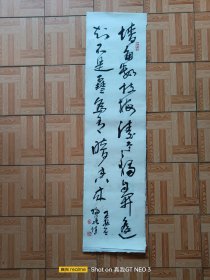 墙角数枝梅凌寒独自开遥
知不是雪为有暗香来
realme Shot on 真我GT NEO 3